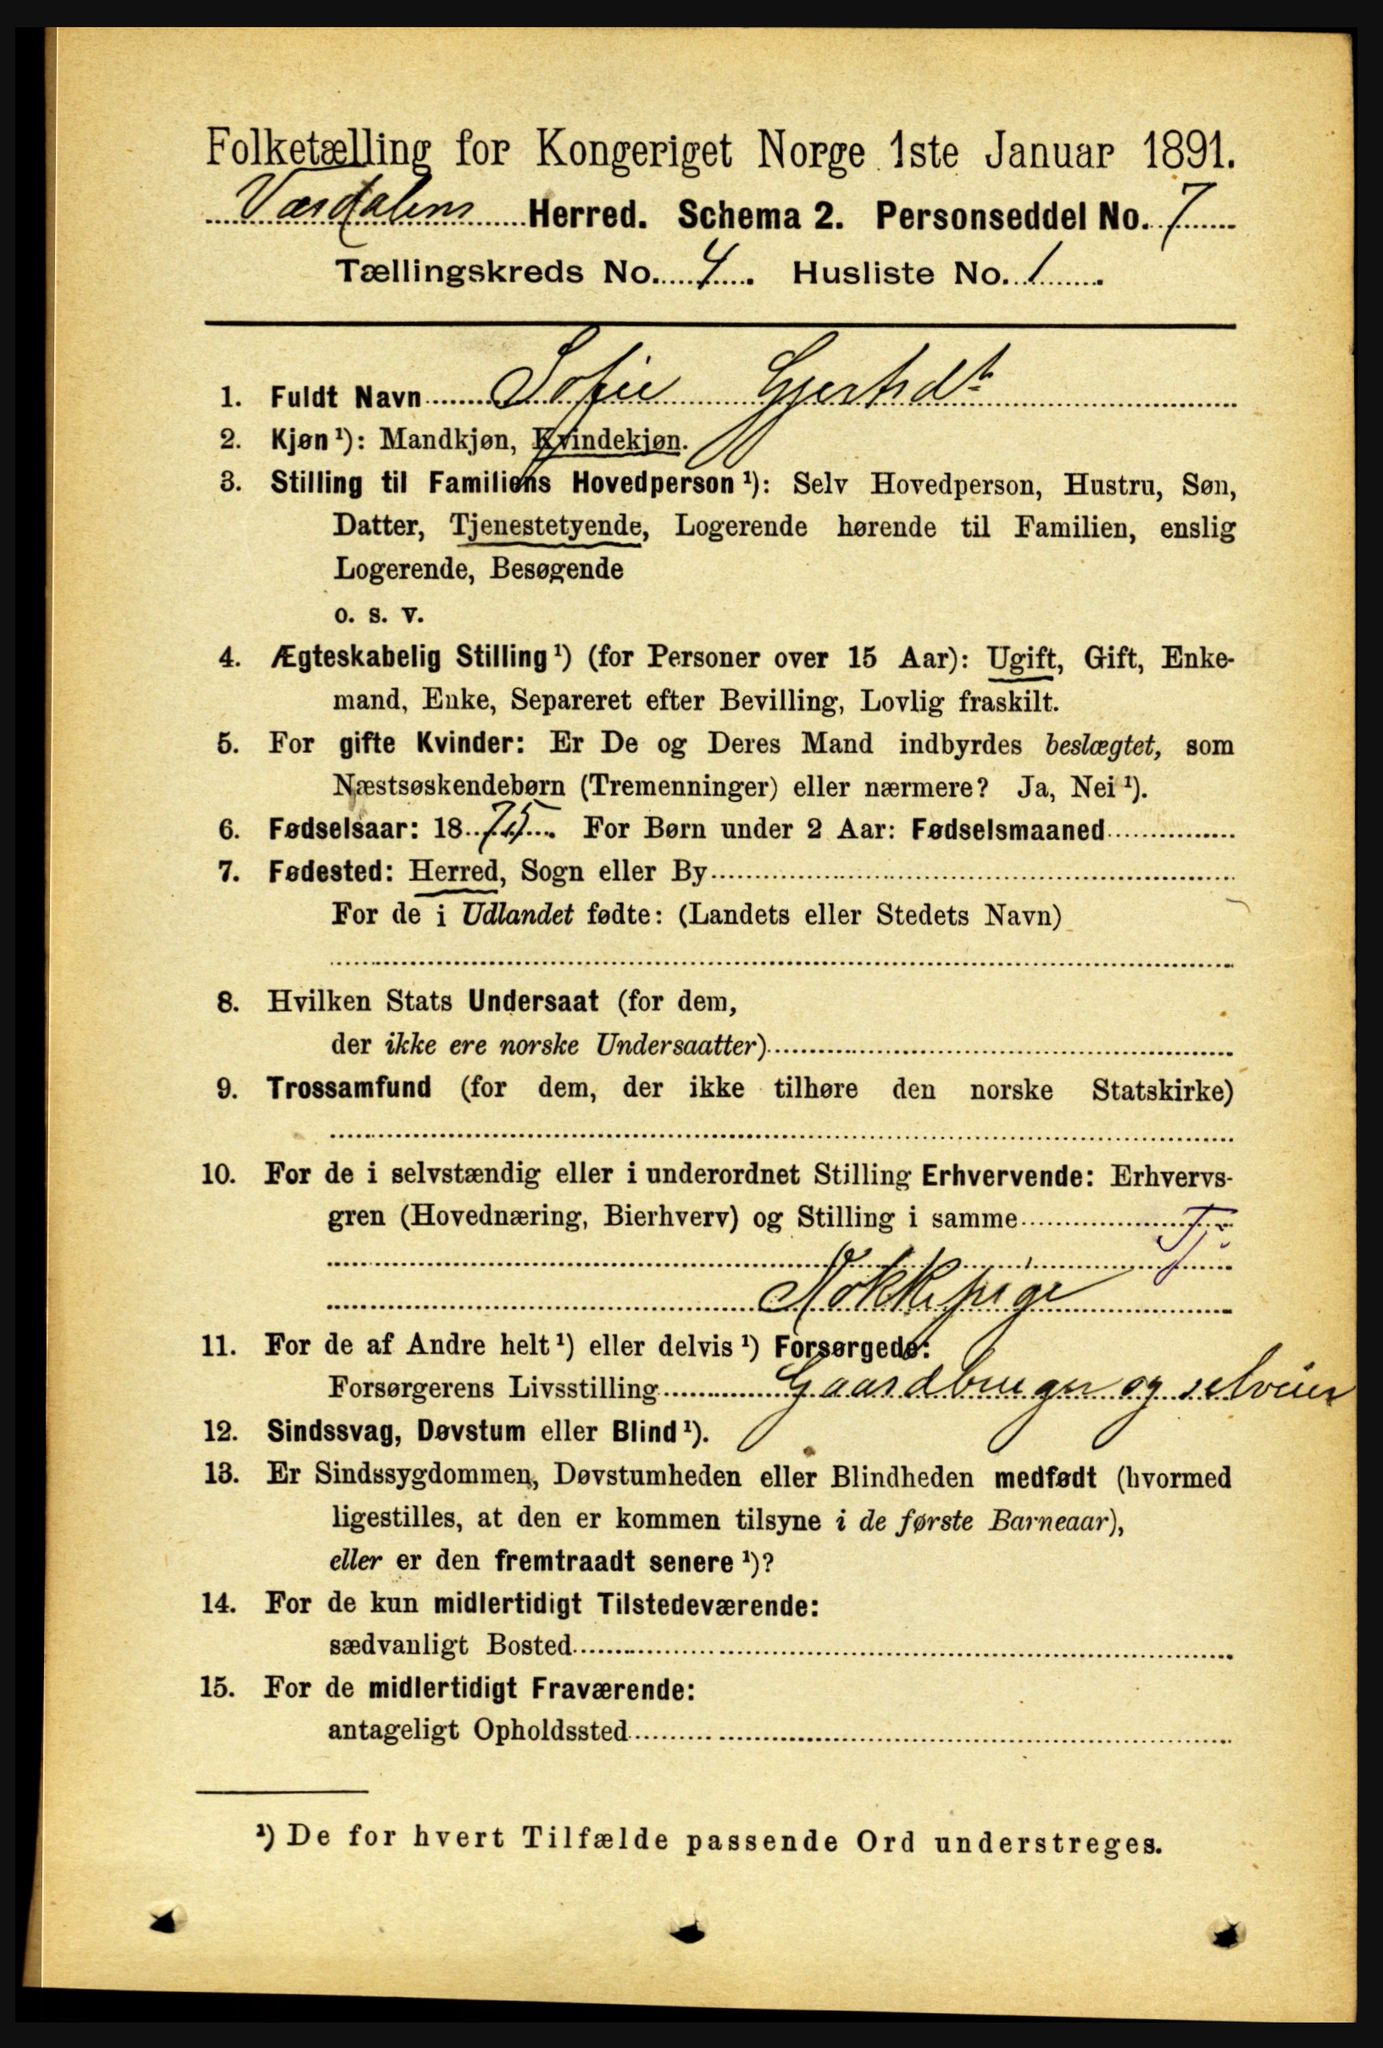 Folketælling for Kongeriget Norge 1ste Januar 1891.
Værdalens Herred. Schema 2. Personseddel No. 7
Tællingskreds No. 4. Husliste No. 1.
1. Fuldt Navn Sofie
2. Kjøn ¹): Mandkjøn, Kvindekjøn.
3. Stilling til Familiens Hovedperson ¹): Selv Hovedperson, Hustru, Søn,
Datter, Tjenestetyende, Logerende hørende til Familien, enslig
Logerende, Besøgende
o. s. v.
4. Ægteskabelig Stilling ¹) (for Personer over 15 Aar): Ugift, Gift, Enke-
mand, Enke, Separeret efter Bevilling, Lovlig fraskilt.
5. For gifte Kvinder: Er De og Deres Mand indbyrdes beslægtet, som
Næstsøskendebørn (Tremenninger) eller nærmere? Ja, Nei ¹).
6. Fødselsaar: 1875. For Børn under 2 Aar: Fødselsmaaned
7. Fødested: Herred, Sogn eller By
For de i Udlandet fødte: (Landets eller Stedets Navn)
8. Hvilken Stats Undersaat (for dem,
der ikke ere norske Undersaatter)
9. Trossamfund (for dem, der ikke tilhøre den norske Statskirke)
10. For de i selvstændig eller i underordnet Stilling Erhvervende: Erhvervs-
gren (Hovednæring, Bierhverv) og Stilling i samme
Tj
Kokkepige
11. For de af Andre helt ¹) eller delvis ¹) Forsørgede:
Forsørgerens Livsstilling Gaardbruger og selveier
12. Sindssvag, Døvstum eller Blind ¹).
13. Er Sindssygdommen, Døvstumheden eller Blindheden medfødt (hvormed
ligestilles, at den er kommen tilsyne i de første Barneaar),
eller er den fremtraadt senere ¹)?
14. For de kun midlertidigt Tilstedeværende:
sædvanligt Bosted
15. For de midlertidigt Fraværende:
antageligt Opholdssted
¹) De for hvert Tilfælde passende Ord understreges.